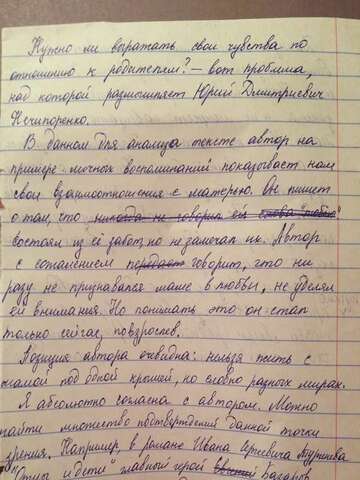 Нужно ли выражать свои чувства по
отношению к родителям? – вот проблема,
над которой размышляет Юрий Дмитриевич
Нечипоренко.
В данном для анализа тексте автор на
примере личных воспоминаний показывает нам
свои взаимоотношения с матерью. Он пишет
о том, что никогда не говорил ей слова "люблю"
состоял из её забот, но не замечал их. Автор
с сожалением передает говорит, что ни
разу не признавался маме в любви, не уделял
ей внимания. Но понимать это он стал
только сейчас, повзрослев.
Позиция автора очевидна: нельзя жить с
мамой под одной крышей, но словно в разных мирах.
Я абсолютно согласна с автором. Можно
найти множество подтверждений данной точки
зрения. Например, в романе Ивана Сергеевича Тургенева
"Отцы и дети" главный герой Базаров